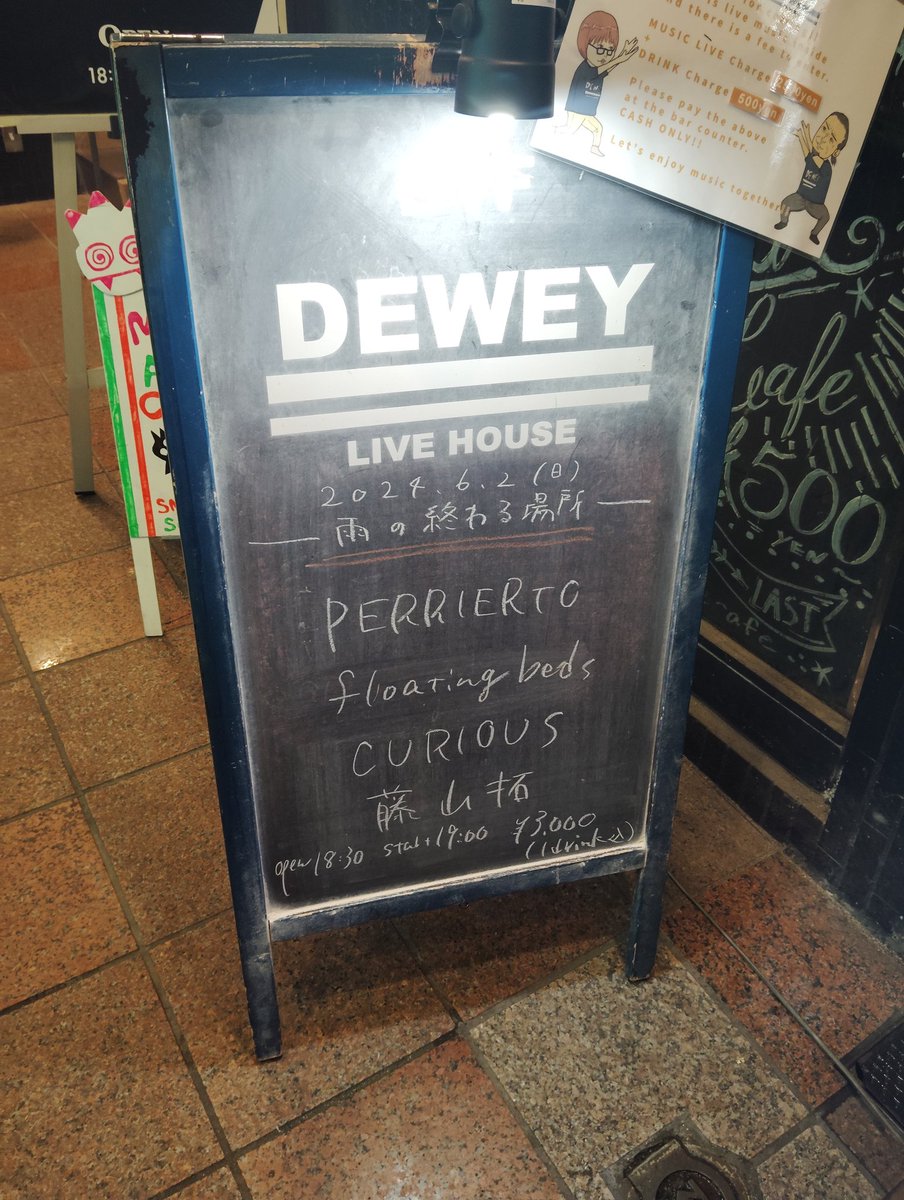 OPEN
18:
DEWEY
LIVE HOUSE
2024.6.2(日)
雨の終わる場所
PERRIERTO
floating beds
CURIOUS
藤山拓
open 18:30 start 19:00 ¥3.000
(1drink込)
is live mu
nd there is a fee to
MUSIC LIVE Charge
+
DRINK Charge 500yen
Please pay the above
at the bar counter.
CASH ONLY!!
Let's enjoy music together!!
cafe
500
YEN
LAST